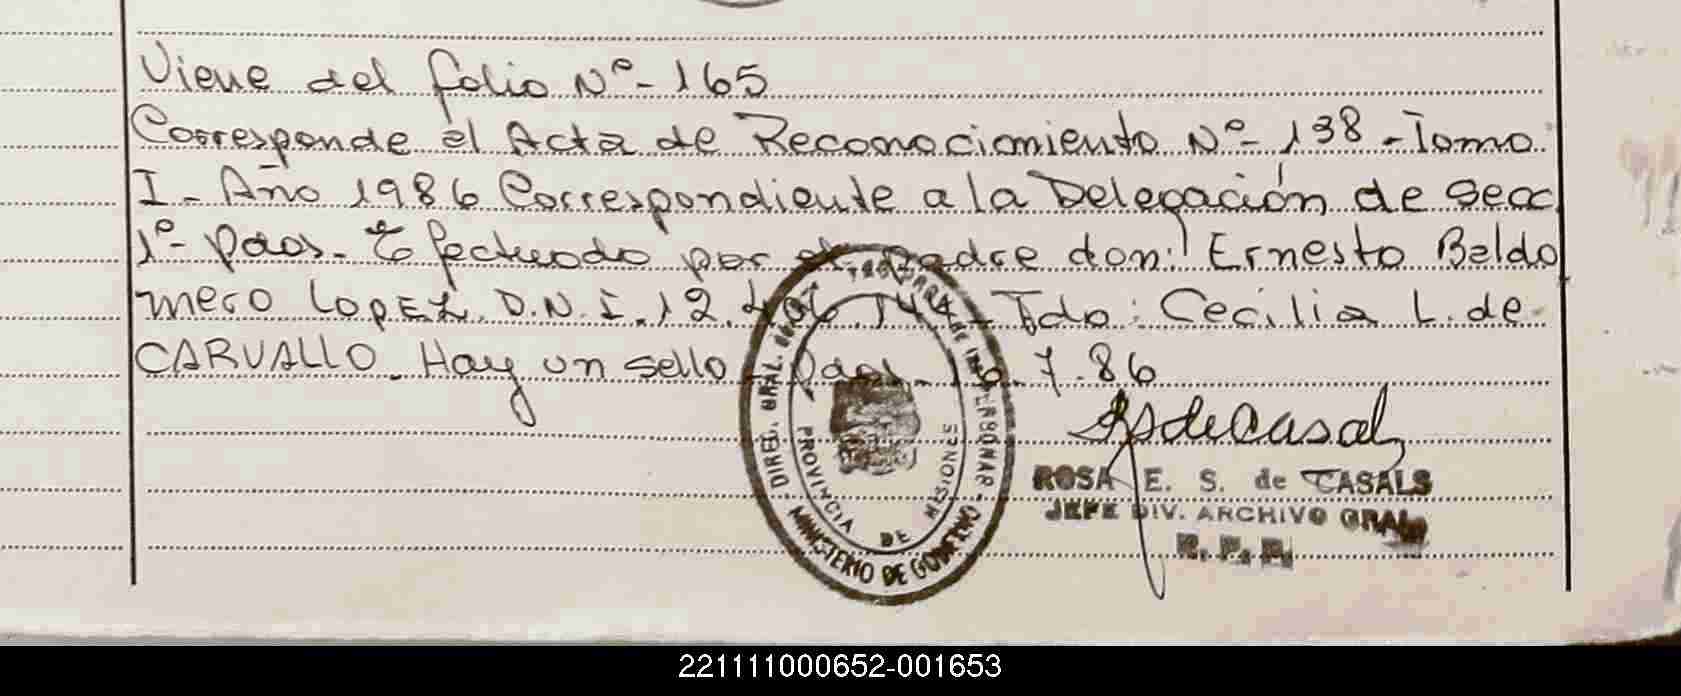 Viene del folio Nº-165
Corresponde al Acta de Reconocimiento Nº-138-Tomo
I-Año 1986 Correspondiente a la Delegación de Secc
1º- Pdas. Efectuado por el padre don: Ernesto Baldo
mero LOPEZ. D.N.I. 12. Fdo: Cecilia L. de
CARVALLO. Hay un sello - 7.86
ROSA E. S. de CASALS
JEFE DIV. ARCHIVO GRAL
R. P. P.
DIREC. GRAL. PERSONAS
PROVINCIA DE MISIONES
MINISTERIO DE GOBIERNO
221111000652-001653